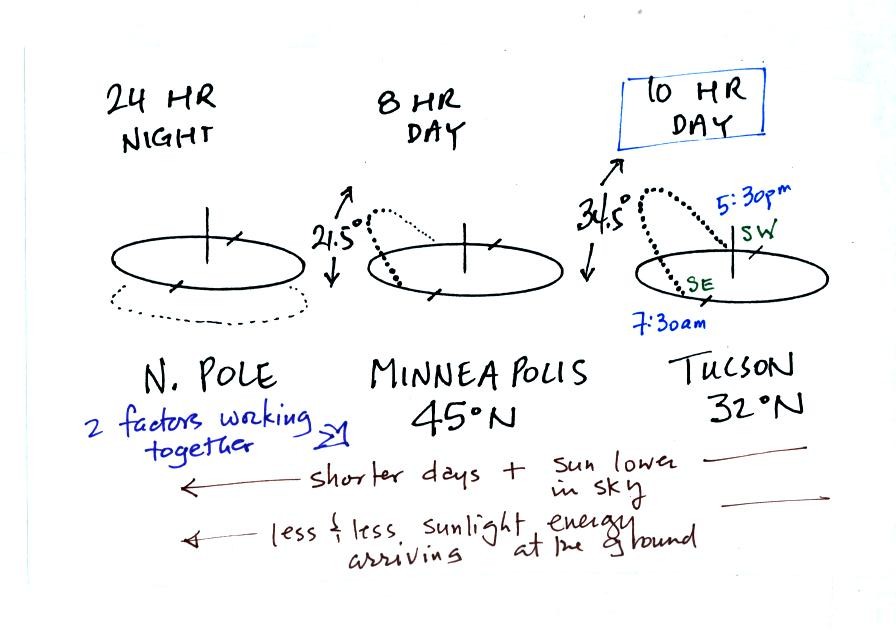 24 HR
NIGHT
8 HR
DAY
10 HR
DAY
21.5°
34.5°
5:30pm
SW
SE
7:30am
N. POLE
MINNEAPOLIS
45°N
TUCSON
32°N
2 factors working
together
shorter days + sun lower
in sky
less & less sunlight energy
arriving at the ground